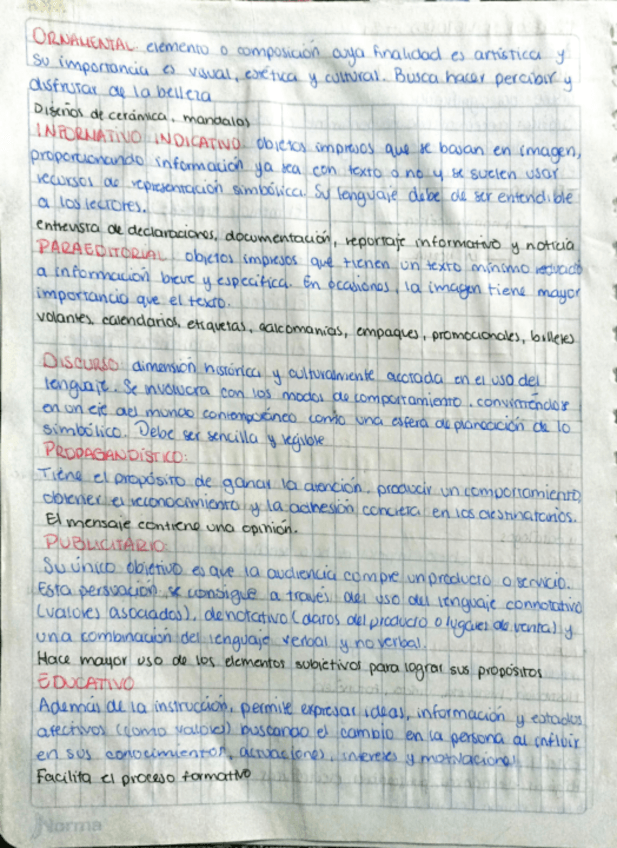 ORNAMENTAL: elemento o composición cuya finalidad es artística y
su importancia es visual, estética y cultural. Busca hacer percibir y
disfrutar de la belleza
Diseños de cerámica, mandalas
INFORMATIVO INDICATIVO objetos impresos que se basan en imagen,
proporcionando información ya sea con texto o no y se suelen usar
recursos de representación simbólica. Su lenguaje debe de ser entendible
a los lectores.
entrevista de declaraciones, documentación, reportaje informativo y noticia
PARAEDITORIAL objetos impresos que tienen un texto mínimo reducido
a información breve y específica. En ocasiones, la imagen tiene mayor
importancia que el texto.
volantes, calendarios, etiquetas, calcomanías, empaques, promocionales, billetes
DISCURSO dimensión histórica y culturalmente acotada en el uso del
lenguaje. Se involucra con los modos de comportamiento, convirtiéndose
en un eje del mundo contemporáneo como una esfera de planeación de lo
simbólico. Debe ser sencilla y legible
PROPAGANDÍSTICO:
Tiene el propósito de ganar la atención, producir un comportamiento,
obtener el reconocimiento y la adhesión concreta en los destinatarios.
El mensaje contiene una opinión.
PUBLICITARIO:
Su único objetivo es que la audiencia compre un producto o servicio.
Esta persuación se consigue a través del uso del lenguaje connotativo
(valores asociados), denotativo (datos del producto o lugares de venta) y
una combinación del lenguaje verbal y no verbal.
Hace mayor uso de los elementos subjetivos para lograr sus propósitos
EDUCATIVO
Además de la instrucción, permite expresar ideas, información y estados
afectivos (como valores) buscando el cambio en la persona al influir
en sus conocimientos, actuaciones, intereses y motivaciones
Facilita el proceso formativo
Norma